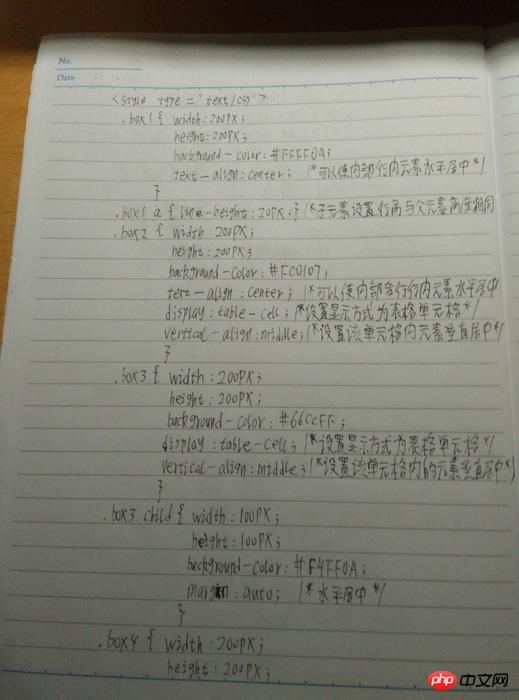 No.
Date
<style type="text/css">
.box1 { width:200PX;
height:200PX;
background-color:#FFFF0A;
text-align:center; /*可以使内部行内元素水平居中*/
}
.box1 a{ line-height:20PX;} /*子元素设置行高与父元素高度相同
.box2 { width:200PX;
height:200PX;
background-color:#FC0107;
text-align:center; /*可以使内部多行行内元素水平居中
display:table-cell; /*设置显示方式为表格单元格*/
vertical-align:middle; /*设置该单元格内元素垂直居中*/
}
.box3 { width:200PX;
height:200PX;
background-color:#66CCFF;
display:table-cell; /*设置显示方式为表格单元格*/
vertical-align:middle; /*设置该单元格内的元素垂直居中*/
}
.box3 .child { width:100PX;
height:100PX;
background-color:#F4FF0A;
margin:auto; /*水平居中*/
}
.box4 { width:200PX;
height:200PX;
php 中文网